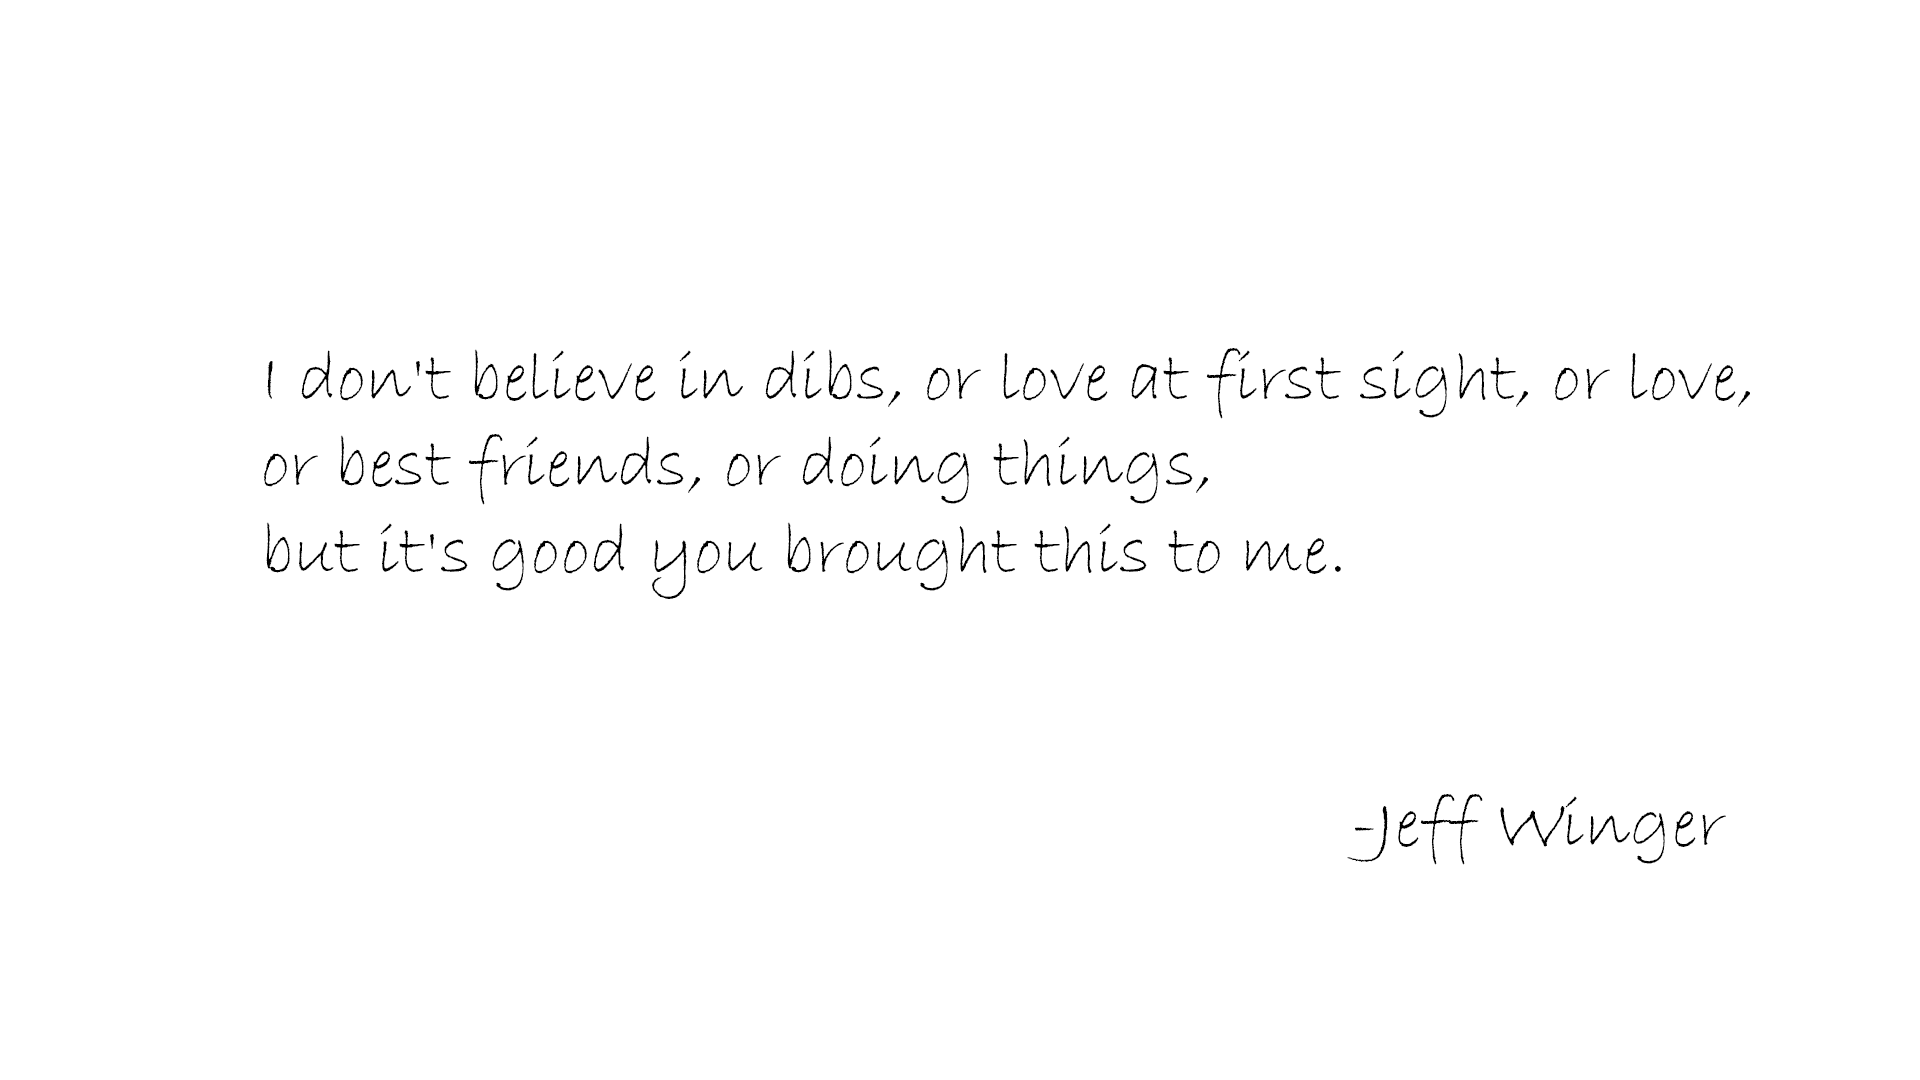 I don't believe in dibs, or love at first sight, or love,
or best friends, or doing things,
but it's good you brought this to me.
-Jeff Winger